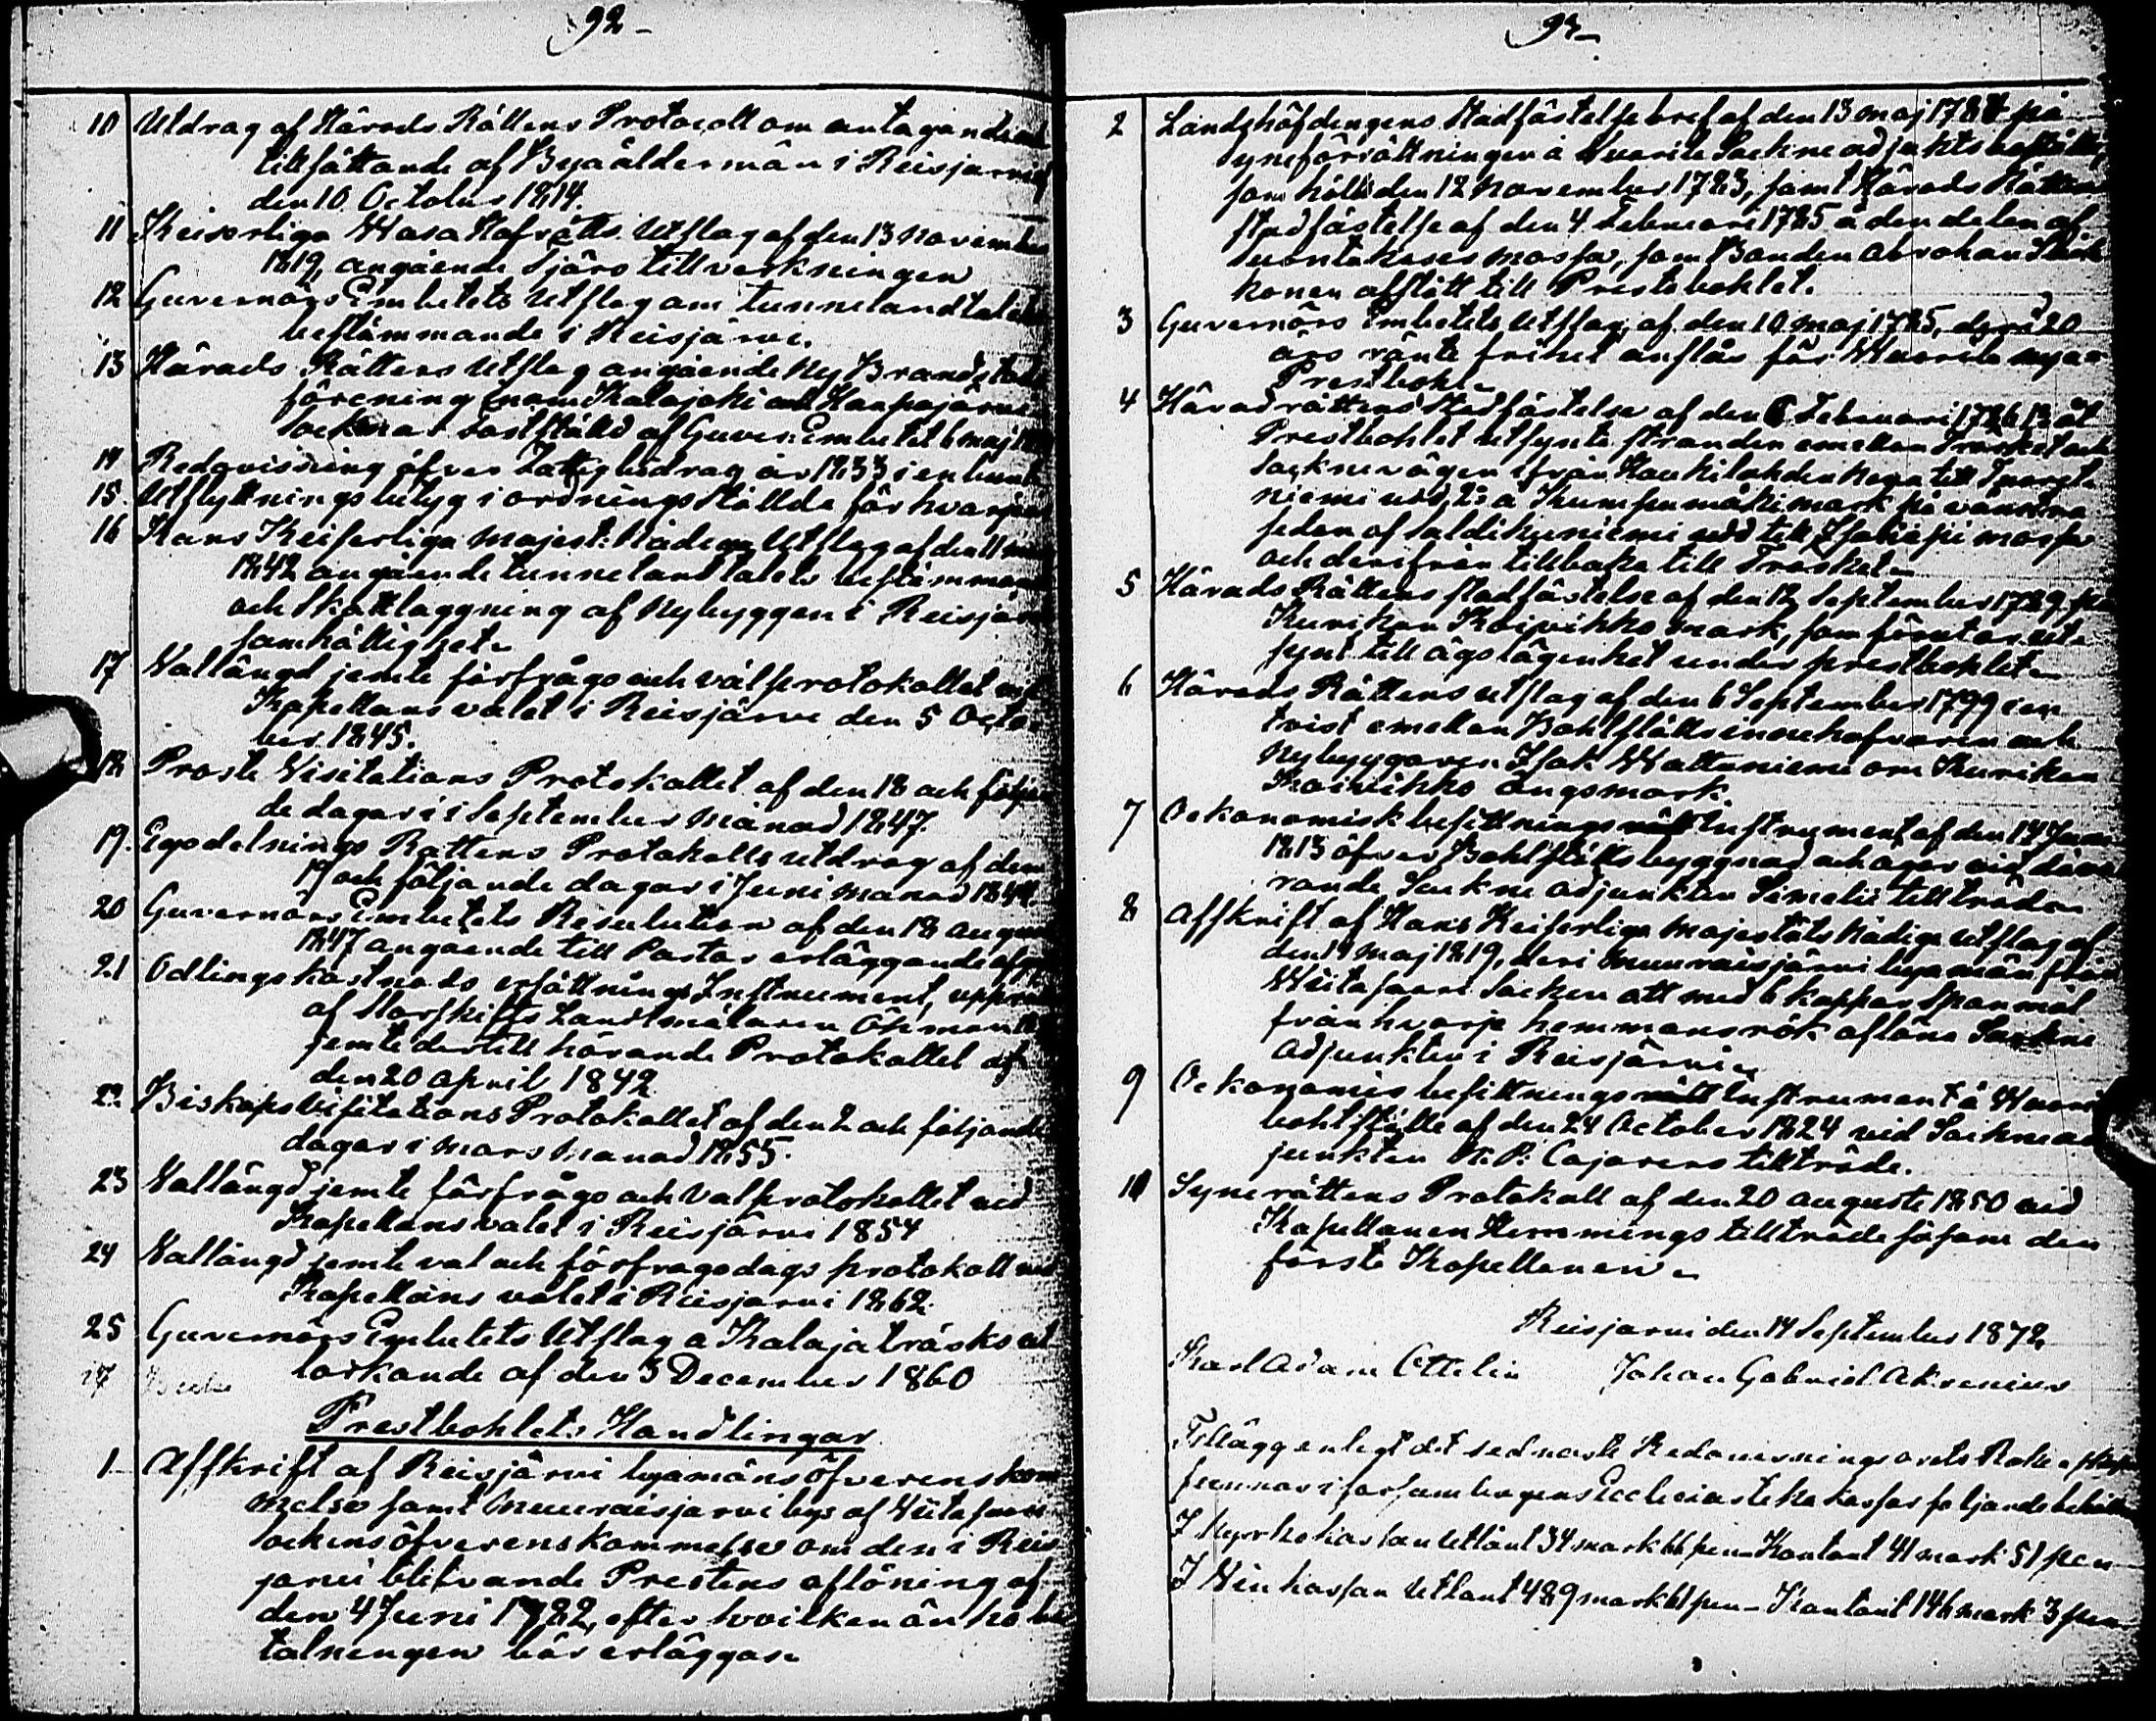 92
10 Utdrag af Härads Rättens Protocoll om antagande
tillsättande af Byaåldermän i Reisjärvi
den 10 October 1814.
11 Keiserliga Wasa Hofrätts Utslag af den 13 November
1819, angående tjäro tillverkningen
12 Guvernörs Embetets Utslag om tunnelandtalets
bestämmande i Reisjärvi.
13 Härads Rättens Utslag angående ny Brandstods
förening inom Kalajoki och Haapajärvi
Socknar fastställd af Guver. Embetet 6 maj
14 Redovisning öfver Fattig bidrag år 1833 i en bunt
15. Utflyttnings betyg i ordning ställda för hvarje
16 Hans Keiserliga Majest: Nådega Utslag af den 11
1842 angående tunnelandtalets bestämmande
och Skattläggning af Nybyggen i Reisjärvi
samhällighet
17 Vallängd jemte förfrågs och valprotokollet vid
Kapellans valet i Reisjärvi den 5 Octo-
ber 1845.
18 Proste Visitations Protokollet af den 18 och följan
de dagar i September Månad 1847.
19. Egodelnings Rättens Protokolls utdrag af den
19 och följande dagar i Juni månad 1844.
20 Guvernörs Embetets Resolution af den 18 August
1847 angående till Pastor erläggande af
21 Odlings kostnads ersättnings Instrument, uppr
af Storskifts Landtmätaren Öhman
jemte dertill hörande Protokollet af
den 20 april 1842
22. Biskops Visitations Protokollet af den 2 och följande
dagar i Mars Månad 1855.
23 Vallängd jemte förfrågs och Valprotokollet vid
Kapellansvalet i Reisjärvi 1854
24 Vallängd jemte val och förfrågodags protokoll vid
Kapellans valet i Reisjärvi 1862.
25 Guvernörs Embetets Utslag a Kalaja träsks ut
torkande af den 3 December 1860
Prestbohlets Handlingar
1 Afskrift af Reisjärvi byamäns öfverenskom
melse samt Muuraisjärvi bys af Wiitasaari
sockens öfverenskommelse om den i Reis
järvi blifvande Prestens aflöning af
den 4 Juni 1782, efter hvilken än nå be
talningen bör erläggas.
93
2 Landshöfdengens Stadfästelse bref af den 13 maj 1784 på
syneförrättningen å Wuorile Sockneadjunkts
som hölls den 12 November 1783, samt Härads Rättens
stadfästelse af den 4 Februari 1785 å den delen af
mossa, som Bonden Abraham
konen afstått till Prestebohlet.
3 Guvernörs Embetets Utslag, af den 10 maj 1785, derå 20
års ränte frihet anslås för Wuorela nya
Prestbohl
4 Häradrättens Stadfästelse af den 6 Februari 1786 åt
Prestbohlet utsynte stranden emellan Träsket och
Socknevägen ifrån Haukilahden till
niemi udd, å Kumpumäki mark på vänstra
sedan af niemi udd till mossa
och derifrån tillbaka till Trasket
5 Härads Rättens stadfästelse af den 12 September 1789 på
Kurikan Koivikko mark, som förutas ut-
synt till ägolägenhet under prestbohlet
6 Härads Rättens utslag af den 6 September 1799 i en
tvist emellan Bohlställsinnehafvaren och
Nybyggaren Isak Wattuniemi om Kurikan
Koivikko ängsmark.
7 Oekonomisk besittningsrätt Instrument af den 14
1813 öfver Bohlställs byggnad och åger vid dåva
rande Sockne adjunkten Simelii tillträde
8 Afskrift af Hans Keiserliga Majestäts Nådiga Utslag af
den 19 Maj 1819, deri Muuraisjärvi byamän från
Wiitasaari Socken att med 6 kappar Spanmål
från hvarje hemmansrök aflöna Sockne
adjunkten i Reisjärvi
9 Oekonomie besittningsrätt Instrument å Wuori
bohlställe af den 24 October 1824 vid Socknead
junkten Cajanens tillträde.
10 Synerättens Protokoll af den 20 Augusti 1850 vid
Kapellanen Hemmings tillträde såsom den
förste Kapellanen
Reisjarvi den 14 September 1872
Karl Adam Ottelin Johan Gabriel Akrenius
Tillägg enligt det sednaste Redovisnings årets Bok
finnas i församlingens Ecclesiastika kassor följande behåll
I Kyrkokassan Utlånt 34 mark 66 pen Kontant 41 mark 51 pen
I Win kassan Utlånt 489 mark 61 pen Kontant 146 mark 3 pen